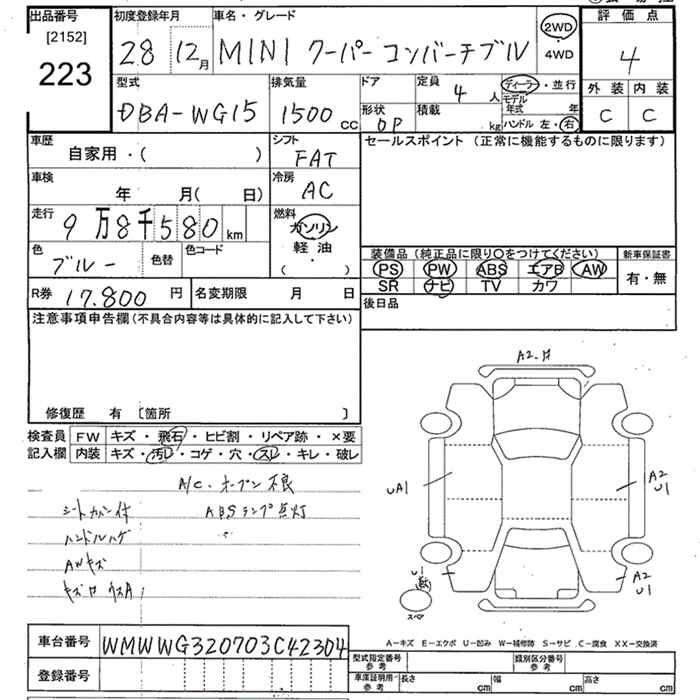 出品番号 [2152] 223
初度登録年月 28 12月
車名・グレード MINI クーパー コンバーチブル
2WD・4WD
評価点 4
外装 内装
C C
型式 DBA-WG15
排気量 1500 cc
ドア
形状 OP
定員 4 人
積載 kg
ディーラー・並行
モデル年式 年
ハンドル 左・右
車歴 自家用・( )
シフト FAT
セールスポイント (正常に機能するものに限ります)
車検 年 月( 日)
冷房 AC
走行 9万8千580km
燃料 ガソリン・軽油・( )
色 ブルー
色替
色コード
装備品 (純正品に限り〇をつけてください)
PS PW ABS エアB AW
SR ナビ TV カワ
新車保証書 有・無
R券 17.800 円
名変期限 月 日
後日品
注意事項申告欄 (不具合内容等は具体的に記入して下さい)
修復歴 有 [箇所 ]
検査員記入欄
FW キズ・飛石・ヒビ割・リペア跡・×要
内装 キズ・汚レ・コゲ・穴・スレ・キレ・破レ
A/C・オープン不良
シートカバー付 ABSランプ点灯
ハンドルハゲ
AWキズ
A2
UA1
A2 U1
U1
A2 U1
スペア
A-キズ E-エクボ U-凹み W-補修跡 S-サビ C-腐食 XX-交換済
車台番号 WMWWG320703C42304
登録番号
型式指定番号 参考
類別区分番号 参考
車庫証明用 参考 長さ cm 幅 cm 高さ cm